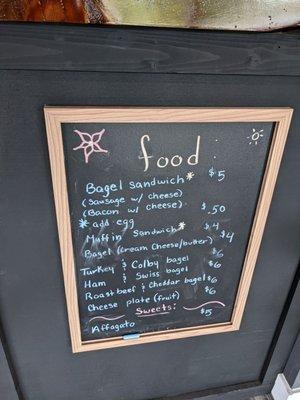 food
Bagel sandwich* $5
(Sausage w/ cheese)
(Bacon w/ cheese)
* add egg $.50
Muffin Sandwich* $4
Bagel (cream cheese/butter) $4
Turkey & Colby bagel $6
Ham & Swiss bagel $6
Roast beef & Cheddar bagel $6
Cheese plate (fruit) $6
Sweets:
Affagato $5